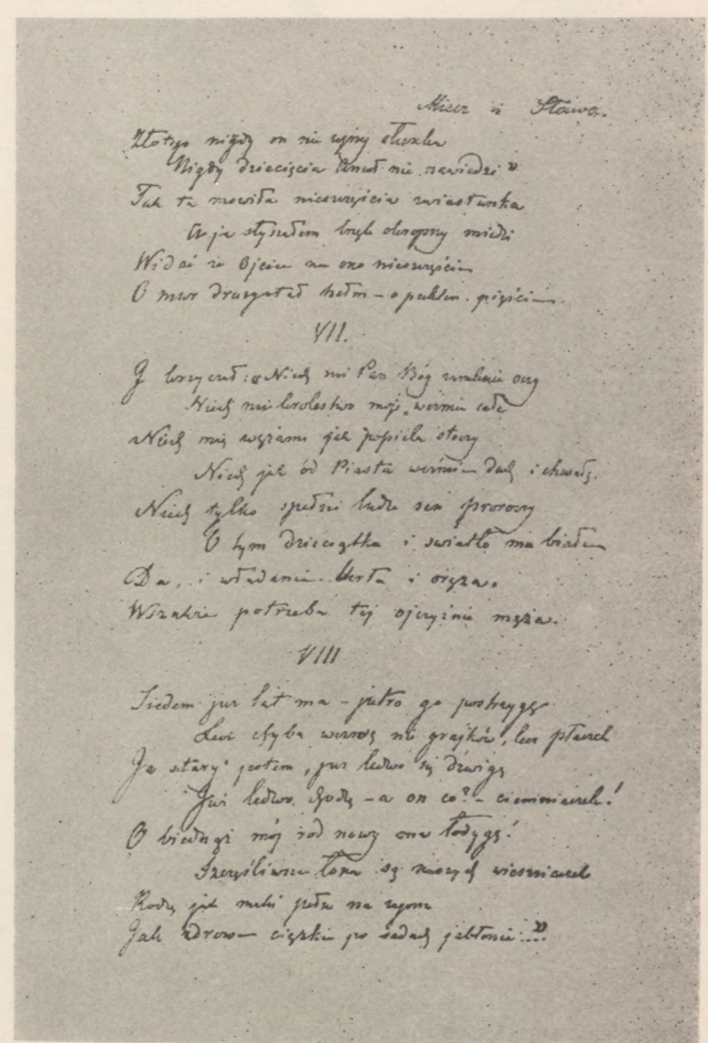 Miecz i Sława.
Złotego nigdy on nie ujrzy
Nigdy dziecięcia nie nawiedzi"
Tak ta mowiła nieszczęścia zwiastunka
A ja słyszałem okropny miedzi
Widać że Ojciec na one nieszczęście
O mur druzgotał hełm – o puklerz. pięście.
VII.
I krzyczał: "Niech mi Pan Bóg oczy
Niech mi krolestwo moje weźmie całe
Niech mię wężami jak popiela otoczy
Niech jak od Piasta weźmie duch i chwałę.
Niech tylko spełni ludu sen proroczy
O tym dzieciątku i swiatło ma białe
Da, i władanie berła i oręża.
Wszakże potrzeba tej ojczyznie męża.
VIII
Siedem juz lat ma – jutro go postrzygę
Lecz chyba wezwę nie grajków, lecz płaczek
Ja stary jestem, juz ledwo się dzwigę
Już ledwo chodzę – a on co? – ciemniaczek!
O biednyż mój ród nowy ma łodygę!
Szczęśliwsze łona są naszych wiesniaczek
Rodzą jak maki pełne na
Jak zdrowe ciężkie po sadach jabłonie...."